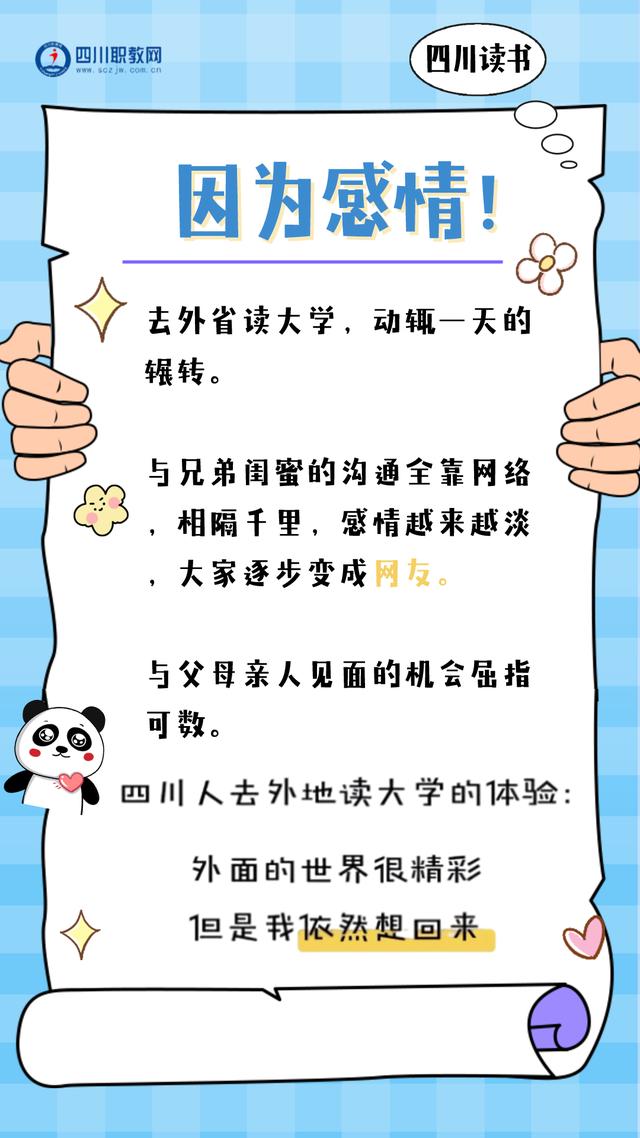 四川职教网
www.sczjw.com.cn
四川读书
因为感情!
去外省读大学，动辄一天的
辗转。
与兄弟闺蜜的沟通全靠网络
，相隔千里，感情越来越淡
，大家逐步变成网友。
与父母亲人见面的机会屈指
可数。
四川人去外地读大学的体验:
外面的世界很精彩
但是我依然想回来